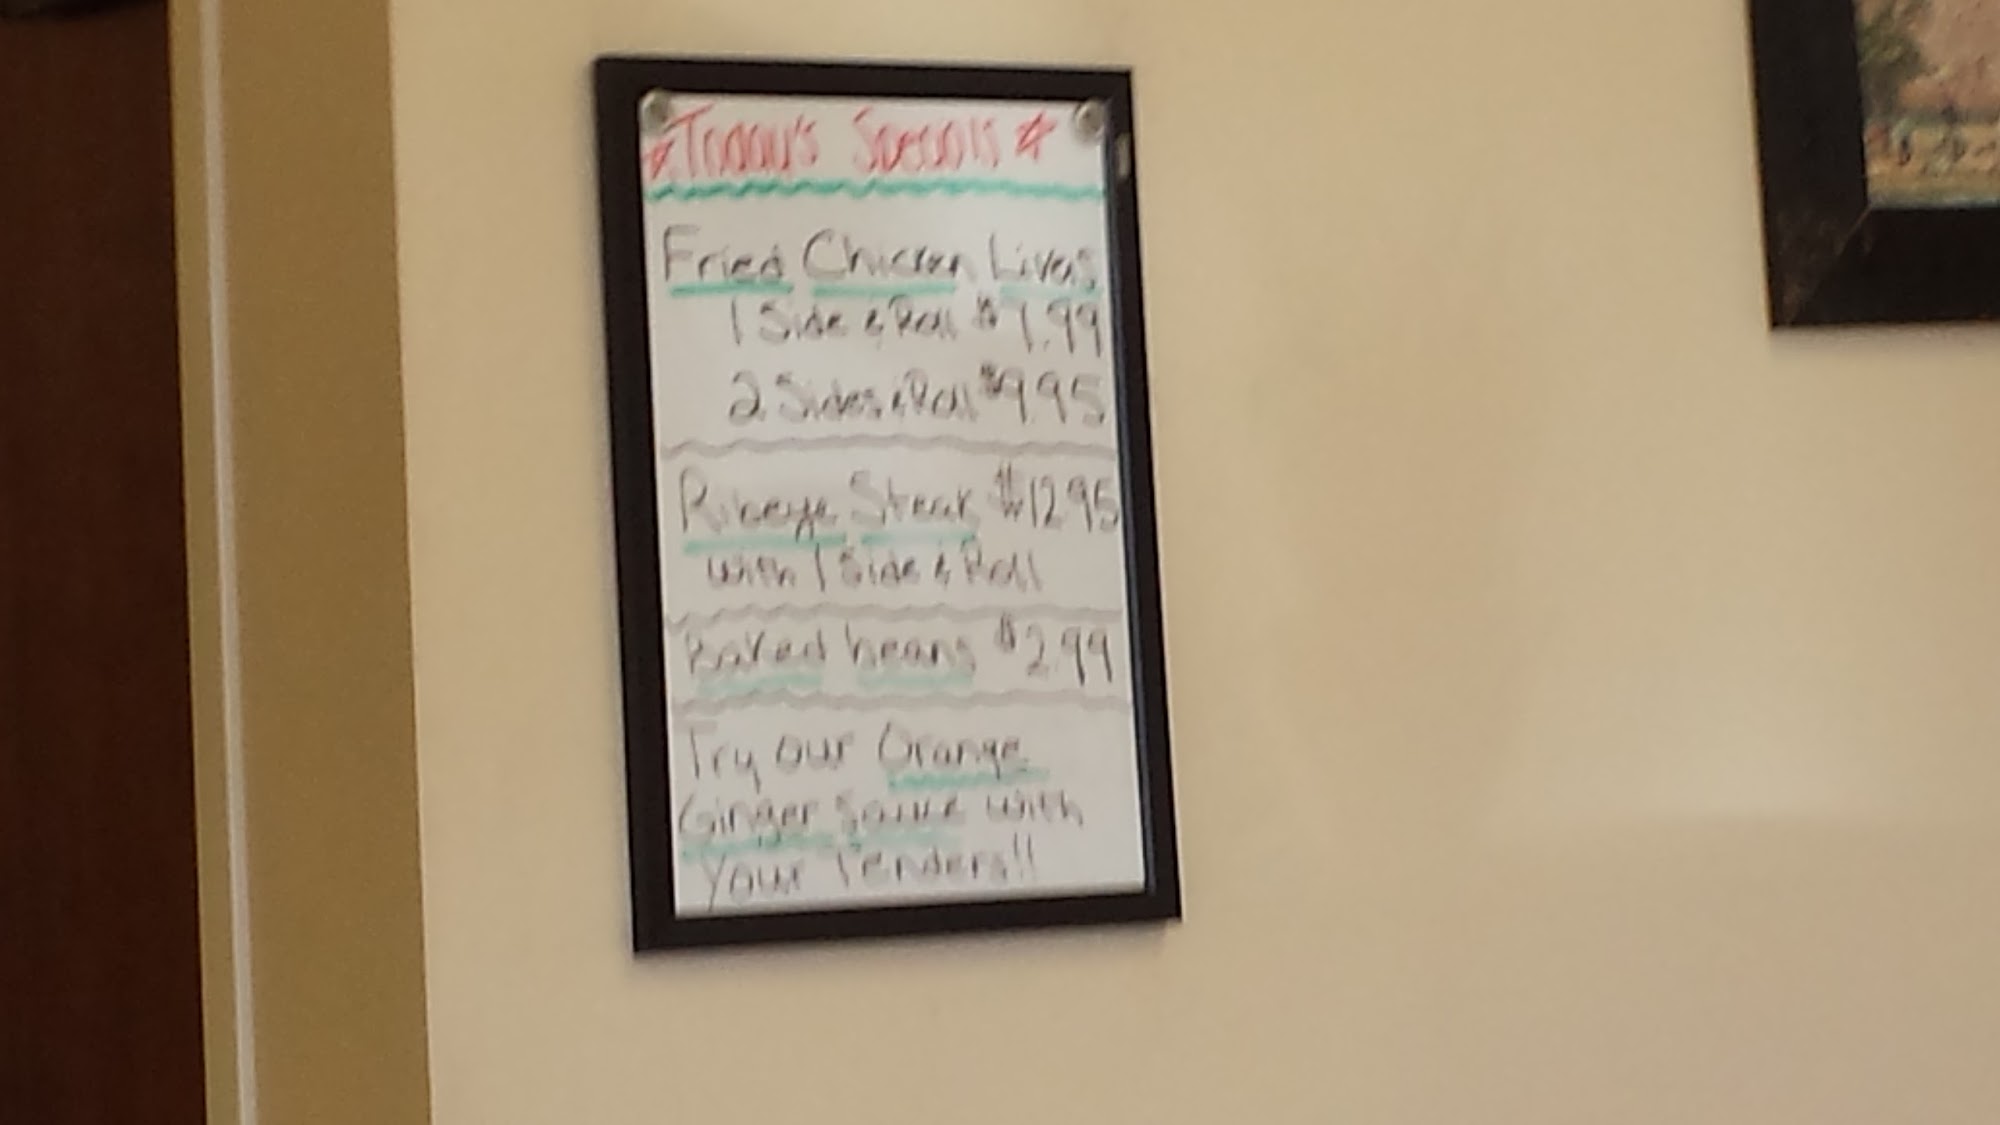 *Today's Specials*
Fried Chicken Livers
1 Side & Roll $7.99
2 Sides & Roll $9.95
Ribeye Steak $12.95
with 1 Side & Roll
Baked beans $2.99
Try our Orange
Ginger Sauce with
Your Tenders!!